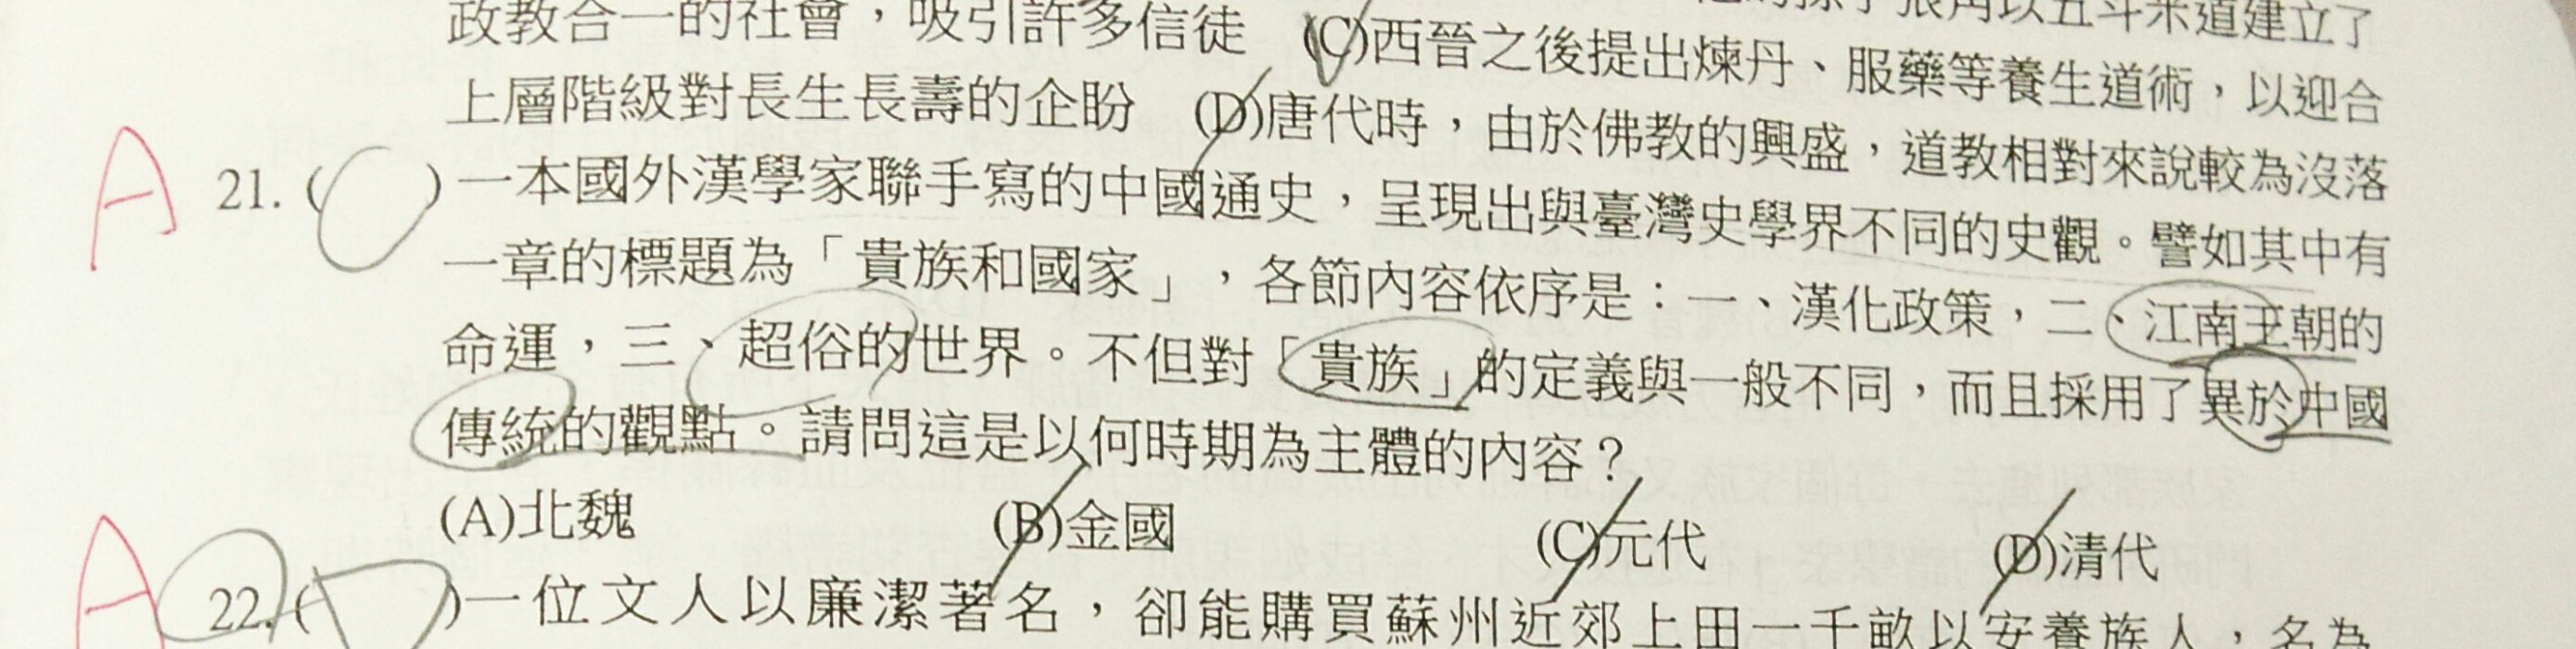 政教合一的社會,吸引許多信徒 (C)西晉之後提出煉丹、服藥等養生道術,以迎合
上層階級對長生長壽的企盼 (D)唐代時,由於佛教的興盛,道教相對來說較為沒落
A 21. ( )一本國外漢學家聯手寫的中國通史,呈現出與臺灣史學界不同的史觀。譬如其中有
一章的標題為「貴族和國家」,各節內容依序是:一、漢化政策,二、江南王朝的
命運,三、超俗的世界。不但對「貴族」的定義與一般不同,而且採用了異於中國
傳統的觀點。請問這是以何時期為主體的內容?
(A)北魏 (B)金國 (C)元代 (D)清代
A 22. ( )一位文人以廉潔著名,卻能購買蘇州近郊上田一千畝以安養族人,名為